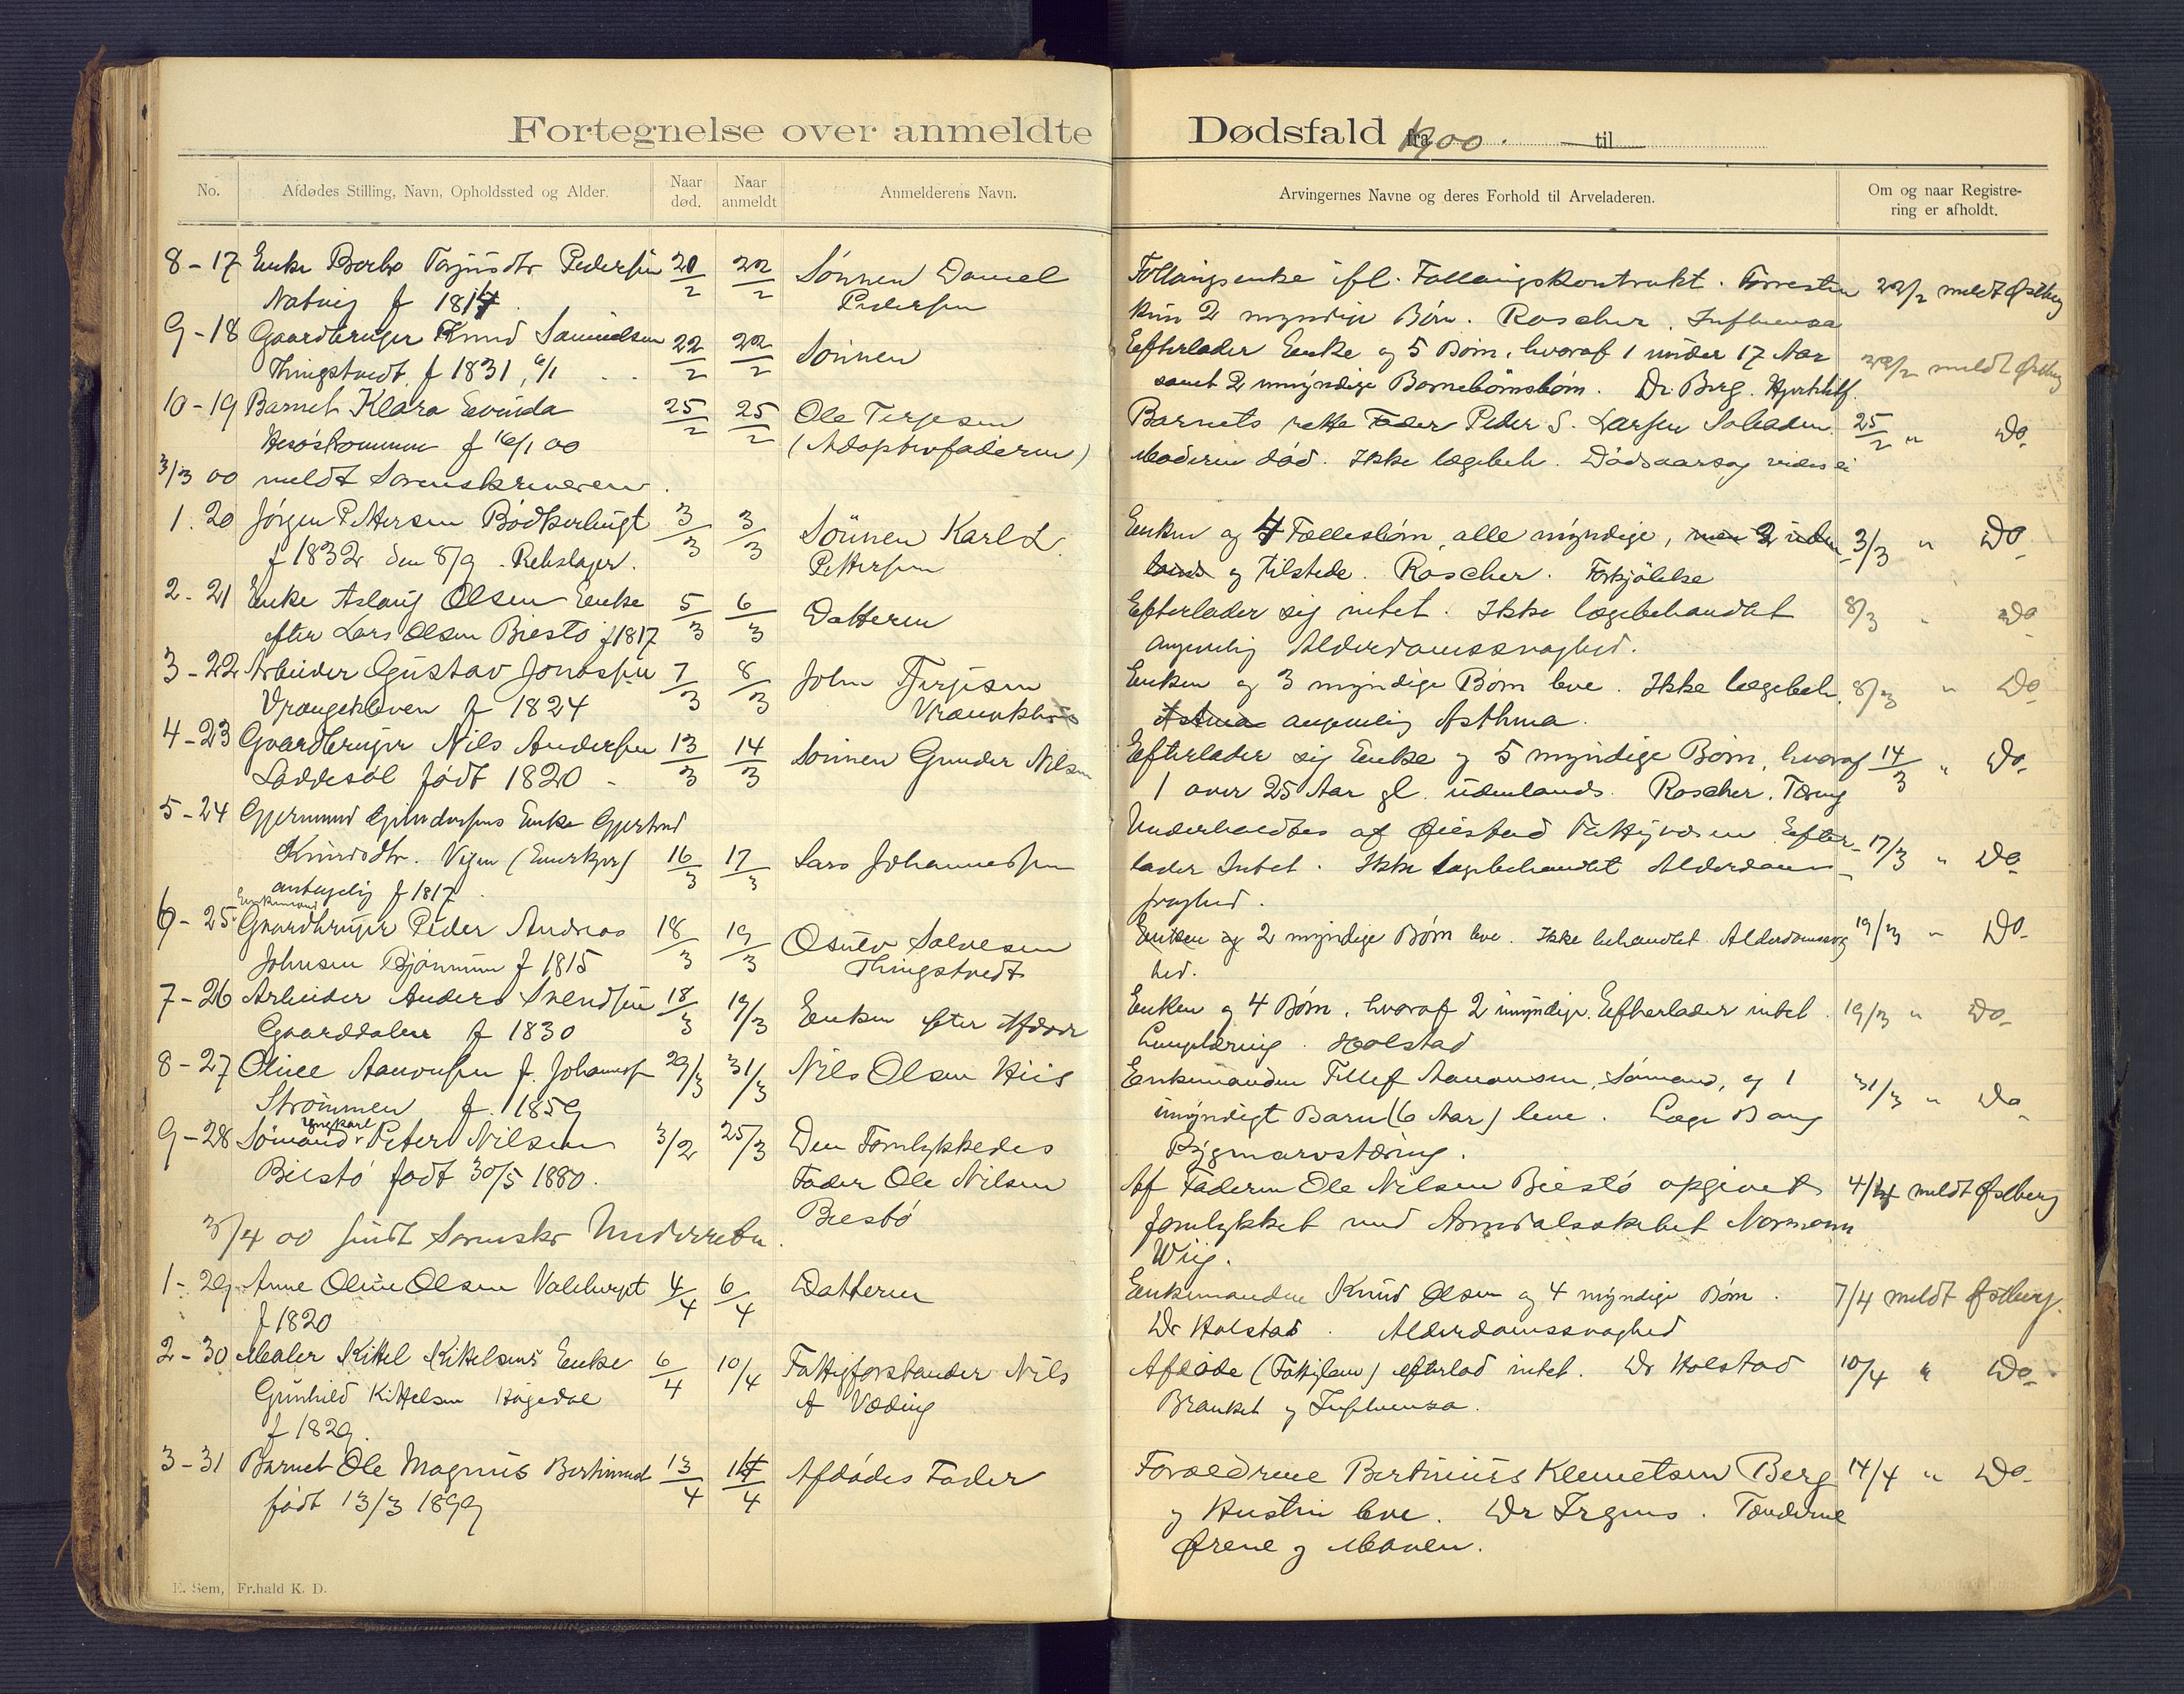 Fortegnelse over anmeldte Dødsfald fra 1900. til
No. Afdødes Stilling, Navn, Opholdssted og Alder. Naar død. Naar anmeldt Anmelderens Navn. Arvingernes Navne og deres Forhold til Arveladeren. Om og naar Registrering er afholdt.
8-17 Enke Torjusdtr Pedersen 20/2 22/2 Sønnen Daniel
Natvig f 1814 Pedersen
Follaugsenke ifl. Follaugskontrakt. 22/2 meldt Østberg
kun 2 myndige Børn. Roscher. Influensa
9-18 Gaardbruger Knud Samuelsen 22/2 22/2 Sønnen
Thingstvedt f 1831, 6/1
Efterlader Enke og 5 Børn, hvoraf 1 under 17 Aar 22/2 meldt Østberg
samt 2 umyndige Barnebørnsbørn. Dr. Berg.
10-19 Barnet Klara 25/2 25/2 Ole Terjesen
f 16/1 00 (Adoptivfaderen)
Barnets rette Fader Peder S. Larsen 25/2 " Do
Moderen død. Ikke lægebeh. Dødsaarsag vides ei
3/3 00 meldt Sorenskriveren.
1. 20 Jörgen Pettersen 3/3 3/3 Sönnen Karl L.
f 1832 den 8/9. Rebslager. Pettersen
Enken og 4 Fællesbörn, alle myndige, men 2 uden- 3/3 " Do
lands og tilstede. Roscher. Forkjölelse
2-21 Enke Aslaug Olsen Enke 5/3 6/3 Datteren
efter Lars Olsen Biestö f 1817
Efterlader sig intet. Ikke lægebehandlet 8/3 " Do
angivelig Alderdomssvaghed.
3-22 Arbeider Gustav Jonassen 7/3 8/3 John Terjesen
Vrangekleven f 1824
Enken og 3 myndige Börn leve. Ikke lægebeh. 8/3 " Do
Astma angivelig Asthma.
4-23 Gaardbruger Nils Andersen 13/3 14/3 Sönnen Gunder Nilsen
Laddesöl födt 1820
Efterlader sig Enke og 5 myndige Börn, hvoraf 14/3 " Do
1 over 25 Aar gl. udenlands. Roscher. Tæring
5-24 Gjermund Enke Gjertrud
Knudsdtr. Vejen 16/3 17/3 Lars Johannessen
antagelig f 1817
Underholdtes af Øiestad Fattigvæsen Efter- 17/3 " Do
lader Intet. Ikke lægebehandlet Alderdoms-
svaghed.
Enkemand
6-25 Gaardbruger Peder Andreas 18/3 19/3 Osulv Salvesen
Johnsen Bjönnum f 1815 Thingstvedt
Enken og 2 myndige Børn leve. Ikke behandlet. Alderdomssvag 19/3 " Do
hed.
7-26 Arbeider Anders Svendsen 18/3 19/3 Enken efter Afdøde
Gaarddalen f 1830
Enken og 4 Børn, hvoraf 2 umyndige. Efterlader intet. 19/3 " Do
Lungetæring. Holstad
8-27 Oline Aanonsen f. Johannesen 29/3 31/3 Nils Olsen Hiis
Strömmen f. 1859
Enkemanden Tellef Aanonsen, Sømand, og 1 31/3 " Do
umyndigt Barn (6 Aar) leve. Læge Bang
Rygmarvstæring.
ungkarl
9-28 Sømand Peter Nilsen 3/2 25/3 Den Forulykkedes
Biestö født 30/5 1880. Fader Ole Nilsen
Biestö
Af Faderen Ole Nilsen Biestö opgivet 4/4 meldt Østberg
forulykket med Arendalsskibet Normann
Wiig.
3/4 00 sendt Sorenskr Underretn.
1-29 Anne Oline Olsen 4/4 6/4 Datteren
f 1820
Enkemanden Knud Olsen og 4 myndige Børn. 7/4 meldt Østberg.
Dr Holstad. Alderdomssvaghed
2-30 Maler Kittel Kittelsens Enke 6/4 10/4 Fattigforstander Nils
Gunhild Kittelsen A Væding
f 1829.
Afdøde (Fattiglem) efterlod intet. Dr Holstad 10/4 " Do
og Influensa.
3-31 Barnet Ole Magnus 13/4 14/4 Afdødes Fader
født 13/3 1899
Forældrene Bertinius Klemetsen Berg 14/4 " Do
og Hustru leve. Dr Irgens. Tænderne
Ørene og Maven.
E. Sem, Fr.hald K. D.